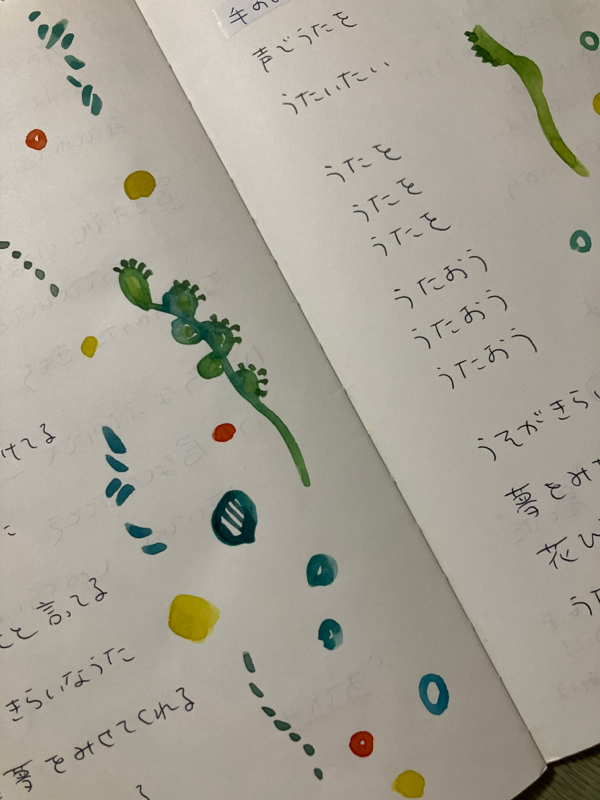 けてる
に
と言ってる
きらいなうた
夢をみせてくれる
る
手の
声でうたを
うたいたい
うたを
うたを
うたを
うたおう
うたおう
うたおう
うそがきらい
夢をみ
花び
うた